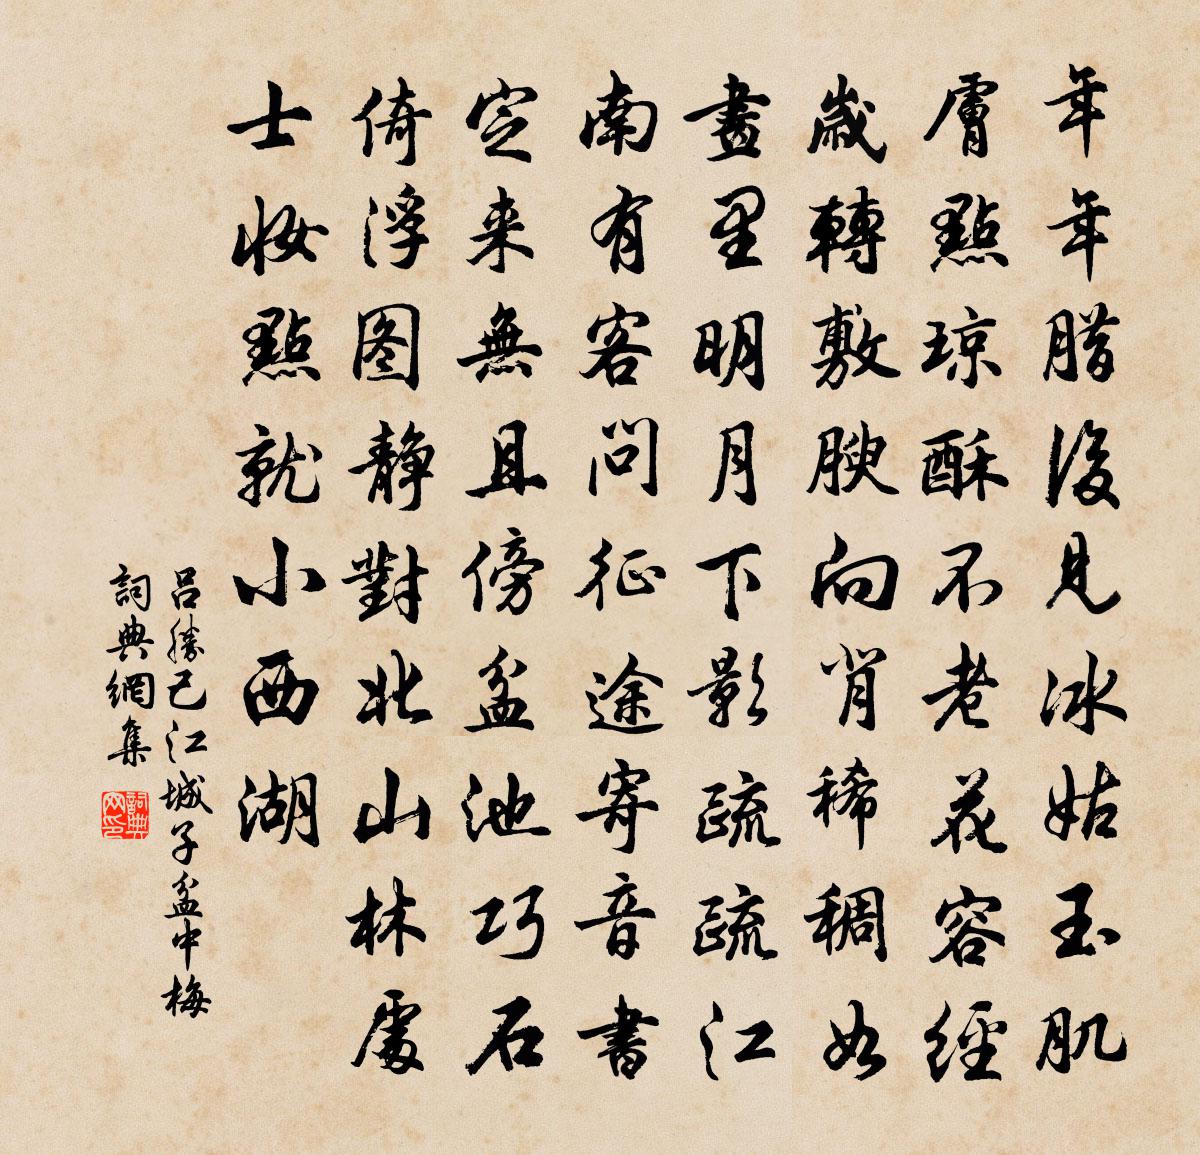 年年腊後見冰姑玉肌
膚點琼酥不老花容經
歲轉敷腴向背稀稠如
畫里明月下影疏疏江
南有客問征途寄音書
定来無且傍盆池巧石
倚浮图静對北山林處
士妝點就小西湖
吕勝己江城子盆中梅
詞典網集
詞典网印